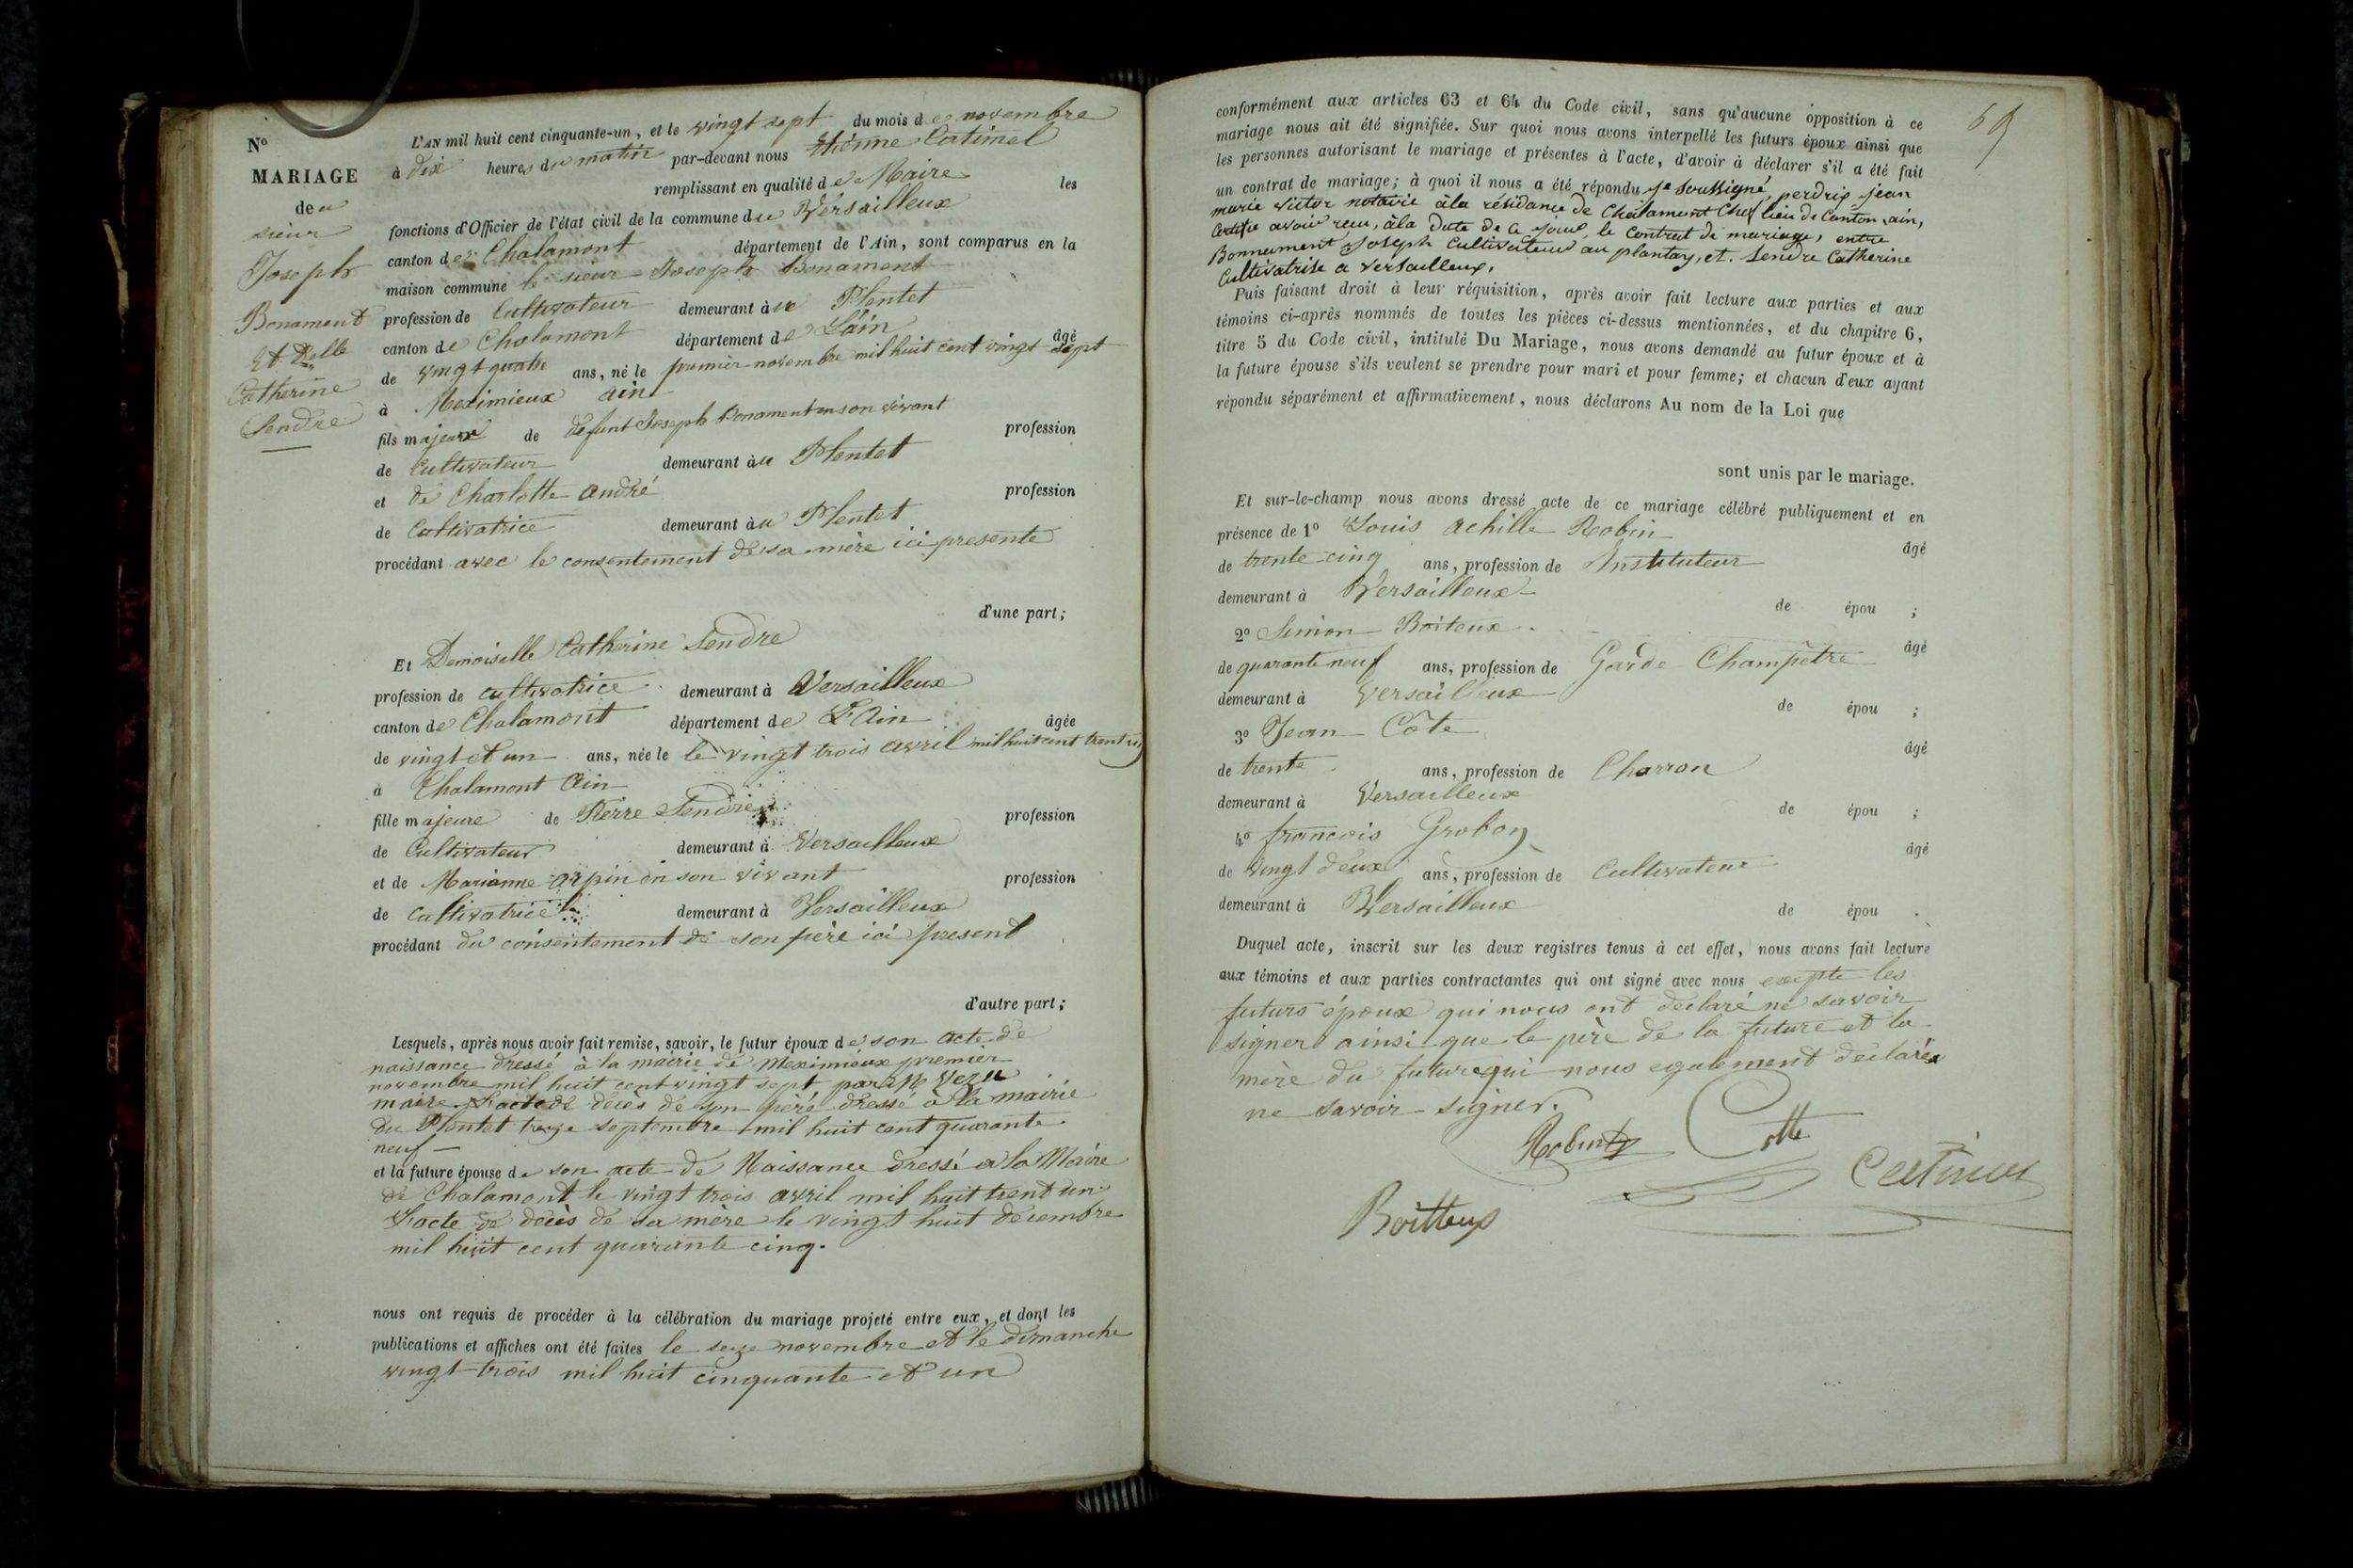 N°
MARIAGE
de u
sieur
Joseph
Bonament
Et Delle
Catherine
Sendre
L'AN mil huit cent cinquante-un, et le vingt sept du mois de novembre
à dix heures du matin par-devant nous Etienne Catimel
remplissant en qualité de Maire les
fonctions d'Officier de l'état civil de la commune de Versailleux
canton de Chalamont département de l'Ain, sont comparus en la
maison commune le sieur Joseph Bonament
profession de Cultivateur demeurant au Plentet
canton de Chalamont département de L'ain âgé
de vingt quatre ans, né le premier novembre mil huit cent vingt sept
à Meximieux ain
fils majeur de defunt Joseph Bonament en son vivant profession
de Cultivateur demeurant au Plentet
et de Charlotte andré profession
de Cultivatrice demeurant au Plentet
procédant avec le consentement de sa mère ici presente
d'une part;
Et Demoiselle Catherine Sendre
profession de cultivatrice demeurant à Versailleux
canton de Chalamont département de L'Ain âgée
de vingt et un ans, née le le vingt trois avril mil huit cent trent un
à Chalamont Ain
fille majeure de Pierre Sendre profession
de Cultivateur demeurant à Versailleux
et de Marianne arpin en son vivant profession
de Cultivatrice demeurant à Versailleux
procédant du consentement de son père ici present
d'autre part;
Lesquels, après nous avoir fait remise, savoir, le futur époux de son acte de
naissance dressé à la mairie de Meximieux premier
novembre mil huit cent vingt sept par
maire. L'acte de décès de son père dressé à la mairie
du Plentet treize septembre mil huit cent quarante
neuf
et la future épouse de son acte de Naissance dressé a la Maire
de Chalamont le vingt trois avril mil huit trent un
L'acte de décès de sa mère le vingt huit decembre
mil huit cent quarante cinq.
nous ont requis de procéder à la célébration du mariage projeté entre eux, et dont les
publications et affiches ont été faites le seize novembre et le dimanche
vingt trois mil huit cinquante et un
69
conformément aux articles 63 et 64 du Code civil, sans qu'aucune opposition à ce
mariage nous ait été signifiée. Sur quoi nous avons interpellé les futurs époux ainsi que
les personnes autorisant le mariage et présentes à l'acte, d'avoir à déclarer s'il a été fait
un contrat de mariage; à quoi il nous a été répondu Je soussigné, perdrix jean
marie victor notaire à la résidance de Chalamont Chef lieu de Canton, ain,
Certifie avoir reçu, à la date de ce jour, le contrat de mariage, entre
Bonnument Joseph Cultivateur au plantay, et. Sendre Catherine
Cultivatrise a versailleux.
Puis faisant droit à leur réquisition, après avoir fait lecture aux parties et aux
témoins ci-après nommés de toutes les pièces ci-dessus mentionnées, et du chapitre 6,
titre 5 du Code civil, intitulé Du Mariage, nous avons demandé au futur époux et à
la future épouse s'ils veulent se prendre pour mari et pour femme; et chacun d'eux ayant
répondu séparément et affirmativement, nous déclarons Au nom de la Loi que
sont unis par le mariage.
Et sur-le-champ nous avons dressé acte de ce mariage célébré publiquement et en
présence de 1° Louis achille Robin
âgé
de trente cinq ans, profession de Instituteur
demeurant à Versailleux
de épou ;
2° Simon Boiteux
âgé
de quarante neuf ans, profession de Garde Champêtre
demeurant à Versailleux
de épou ;
3° Jean Côte
âgé
de trente ans, profession de Charron
demeurant à Versailleux
de épou ;
4° francois Grobon
âgé
de vingt deux ans, profession de Cultivateur
demeurant à Versailleux
de épou .
Duquel acte, inscrit sur les deux registres tenus à cet effet, nous avons fait lecture
aux témoins et aux parties contractantes qui ont signé avec nous excepte les
futurs époux qui nous ont declaré ne savoir
signer ainsi que le père de la future et la
mère du future qui nous egalement declarés
ne savoir signer.
Cotte
Boitteux